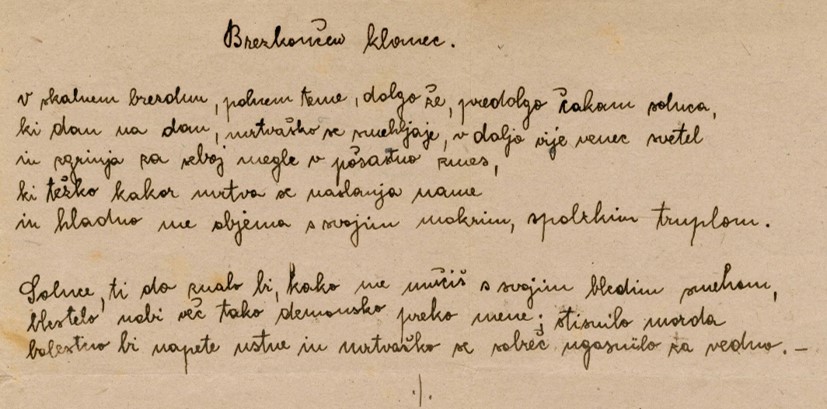 Brezkončen klanec.
v skalnem breznu, polnem teme, dolgo že, predolgo čakam solnca,
ki dan na dan, mrtvaško se smehljaje, v daljo vije venec svetel
in zgrinja za seboj megle v pošastno zmes,
ki težko kakor mrtva se naslanja name
in hladno me objema s svojim mokrim, spolzkim truplom.
Solnce, ti da znalo bi, kako me mučiš s svojim bledim smehom,
blestelo nebi več tako demonsko preko mene; stisnilo morda
bolestno bi napete ustne in mrtvaško se solzeč ugasnilo za vedno. –
·/.